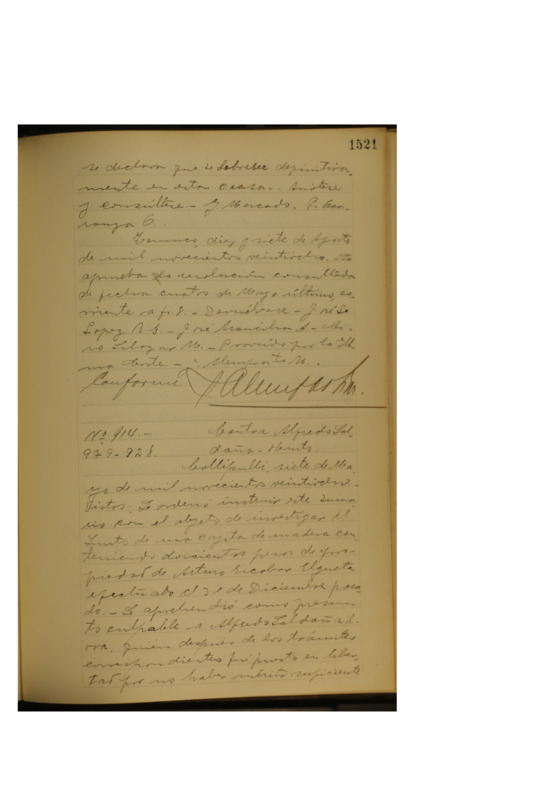 1521
se declara que se sobresee definitiva-
mente en esta causa.. Anótese
y consúltese - J. Mercado. P. Ca-
rranza C..
Temuco, diez y siete de Agosto
de mil novecientos veintiocho. - Se
aprueba la resolución consultada
de fecha cuatro de Mayo último, es-
crita a fs. 8. - Devuélvase - José S.
Lopez R. S. - José Arancibia S. -
Salazar M. - Proveído por la Ilt-
ma Corte -
Conforme
Nº 914. -
Contra Alfredo Sal-
979-928.
daña - Hurto.
Collipulli, siete de Ma-
yo de mil novecientos veintiocho. -
Vistos: Se ordenó instruir este suma-
rio con el objeto de investigar el
hurto de una cajita de madera con-
teniendo doscientos pesos de pro-
piedad de Arturo Escobar Elgueta
efectuado el 31 de Diciembre pasa-
do. - Se aprehendió como presun-
to culpable a Alfredo Saldaña
quien después de los trámites
correspondientes fué puesto en liber-
tad por no haber mérito suficiente